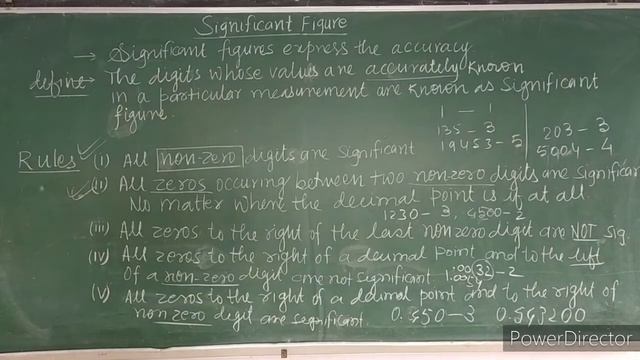 Significant Figure
→ Significant figures express the accuracy.
define → The digits whose values are accurately known
in a particular measurement are known as significant
figure.
1 - 1
135 - 3
19453 - 5
203 - 3
5004 - 4
Rules (i) All non-zero digits are significant
(ii) All zeros occuring between two nonzero digits are significan
No matter where the decimal point is if at all.
1230 - 3, 4500 - 2
(iii) All zeros to the right of the last nonzero digit are NOT sig.
(iv) All zeros to the right of a decimal point and to the left
of a non-zero digit are not significant
(v) All zeros to the right of a decimal point and to the right of
non zero digit are significant. 0.350 - 3 0.543200
PowerDirector